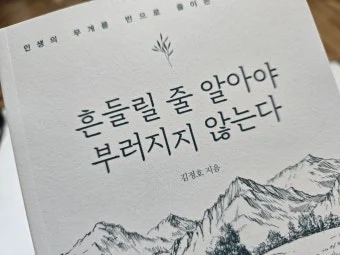 인생의 무게를 반으로 줄이는
흔들릴 줄 알아야
부러지지 않는다
김정호 지음